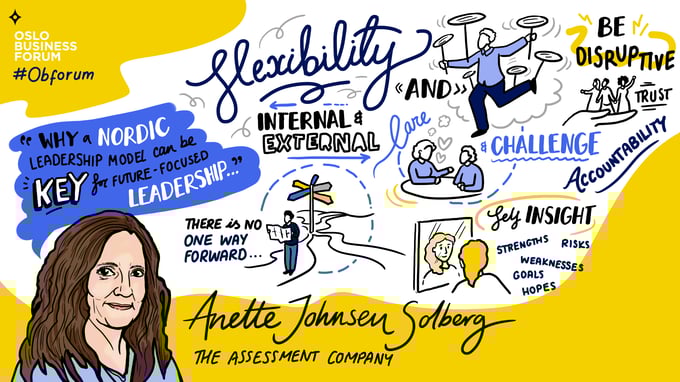 OSLO
BUSINESS
FORUM
#Obforum
"WHY a NORDIC
LEADERSHIP MODEL can be
KEY for FUTURE-FOCUSED
LEADERSHIP..."
flexibility
INTERNAL &
EXTERNAL
THERE is NO
ONE WAY
FORWARD...
«AND»
Care
& CHALLENGE
BE
DISRUPTIVE
TRUST
ACCOUNTABILITY
Self INSIGHT
STRENGTHS RISKS
WEAKNESSES
GOALS
HOPES
Anette Johnsen Solberg
THE ASSESSMENT COMPANY